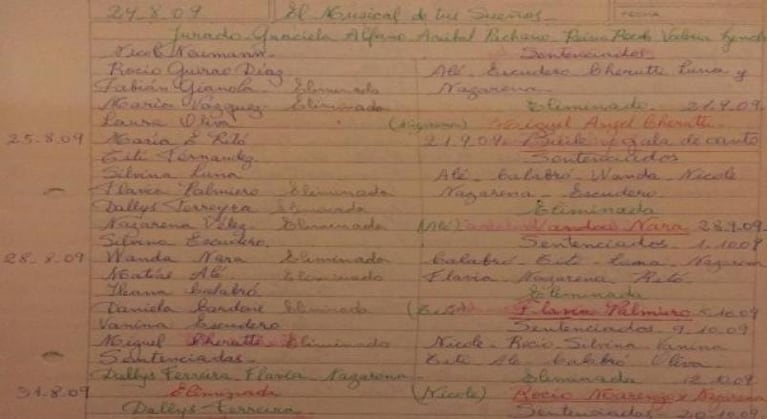 24.8.09 El Musical de tus Sueños
FECHA
Jurado. Graciela Alfano. Anibal Pachano. Reina Reech Valeria Lynch
Nicole Neumann
Rocío Guirao Díaz
Fabián Gianola Eliminado
María Vázquez Eliminada
Laura Oliva
25.8.09 María E. Ritó
Tití Fernandez
Silvina Luna
Flavia Palmiero Eliminada
Dallys Ferreyra Eliminada
Nazarena Vélez Eliminada
Silvina Escudero
28.8.09 Wanda Nara Eliminada
Matías Alé Eliminado
Iliana Calabró
Daniela Cardone Eliminada
Vanina Escudero
Miguel Cherutti Eliminado
Sentenciadas
Dallys Ferreira Flavia Nazarena
31.8.09 Eliminada
Dallys Ferreira
Sentenciados
Alé. Escudero Cherutti Luna y
Nazarena
Eliminado 21.9.09
(Nazarena) Miguel Angel Cherutti
21.9.09 y gala de canto
Sentenciados
Alé. Calabró. Wanda. Nicole
Nazarena. Escudero.
Eliminada
(Alé) Wanda Nara 28.9.09
Sentenciados 1.10.09
Calabró. Tití. Luna. Nazarena
Flavia Nazarena Ritó
Eliminada
(Tití) Flavia Palmiero 5.10.09
Sentenciados 9.10.09
Nicole. Rocío. Silvina Vanina
Tití Alé Calabró Oliva
Eliminada 12.10.09
(Nicole) Rocío Marengo y Nazarena
Sentenciados 20.10.09